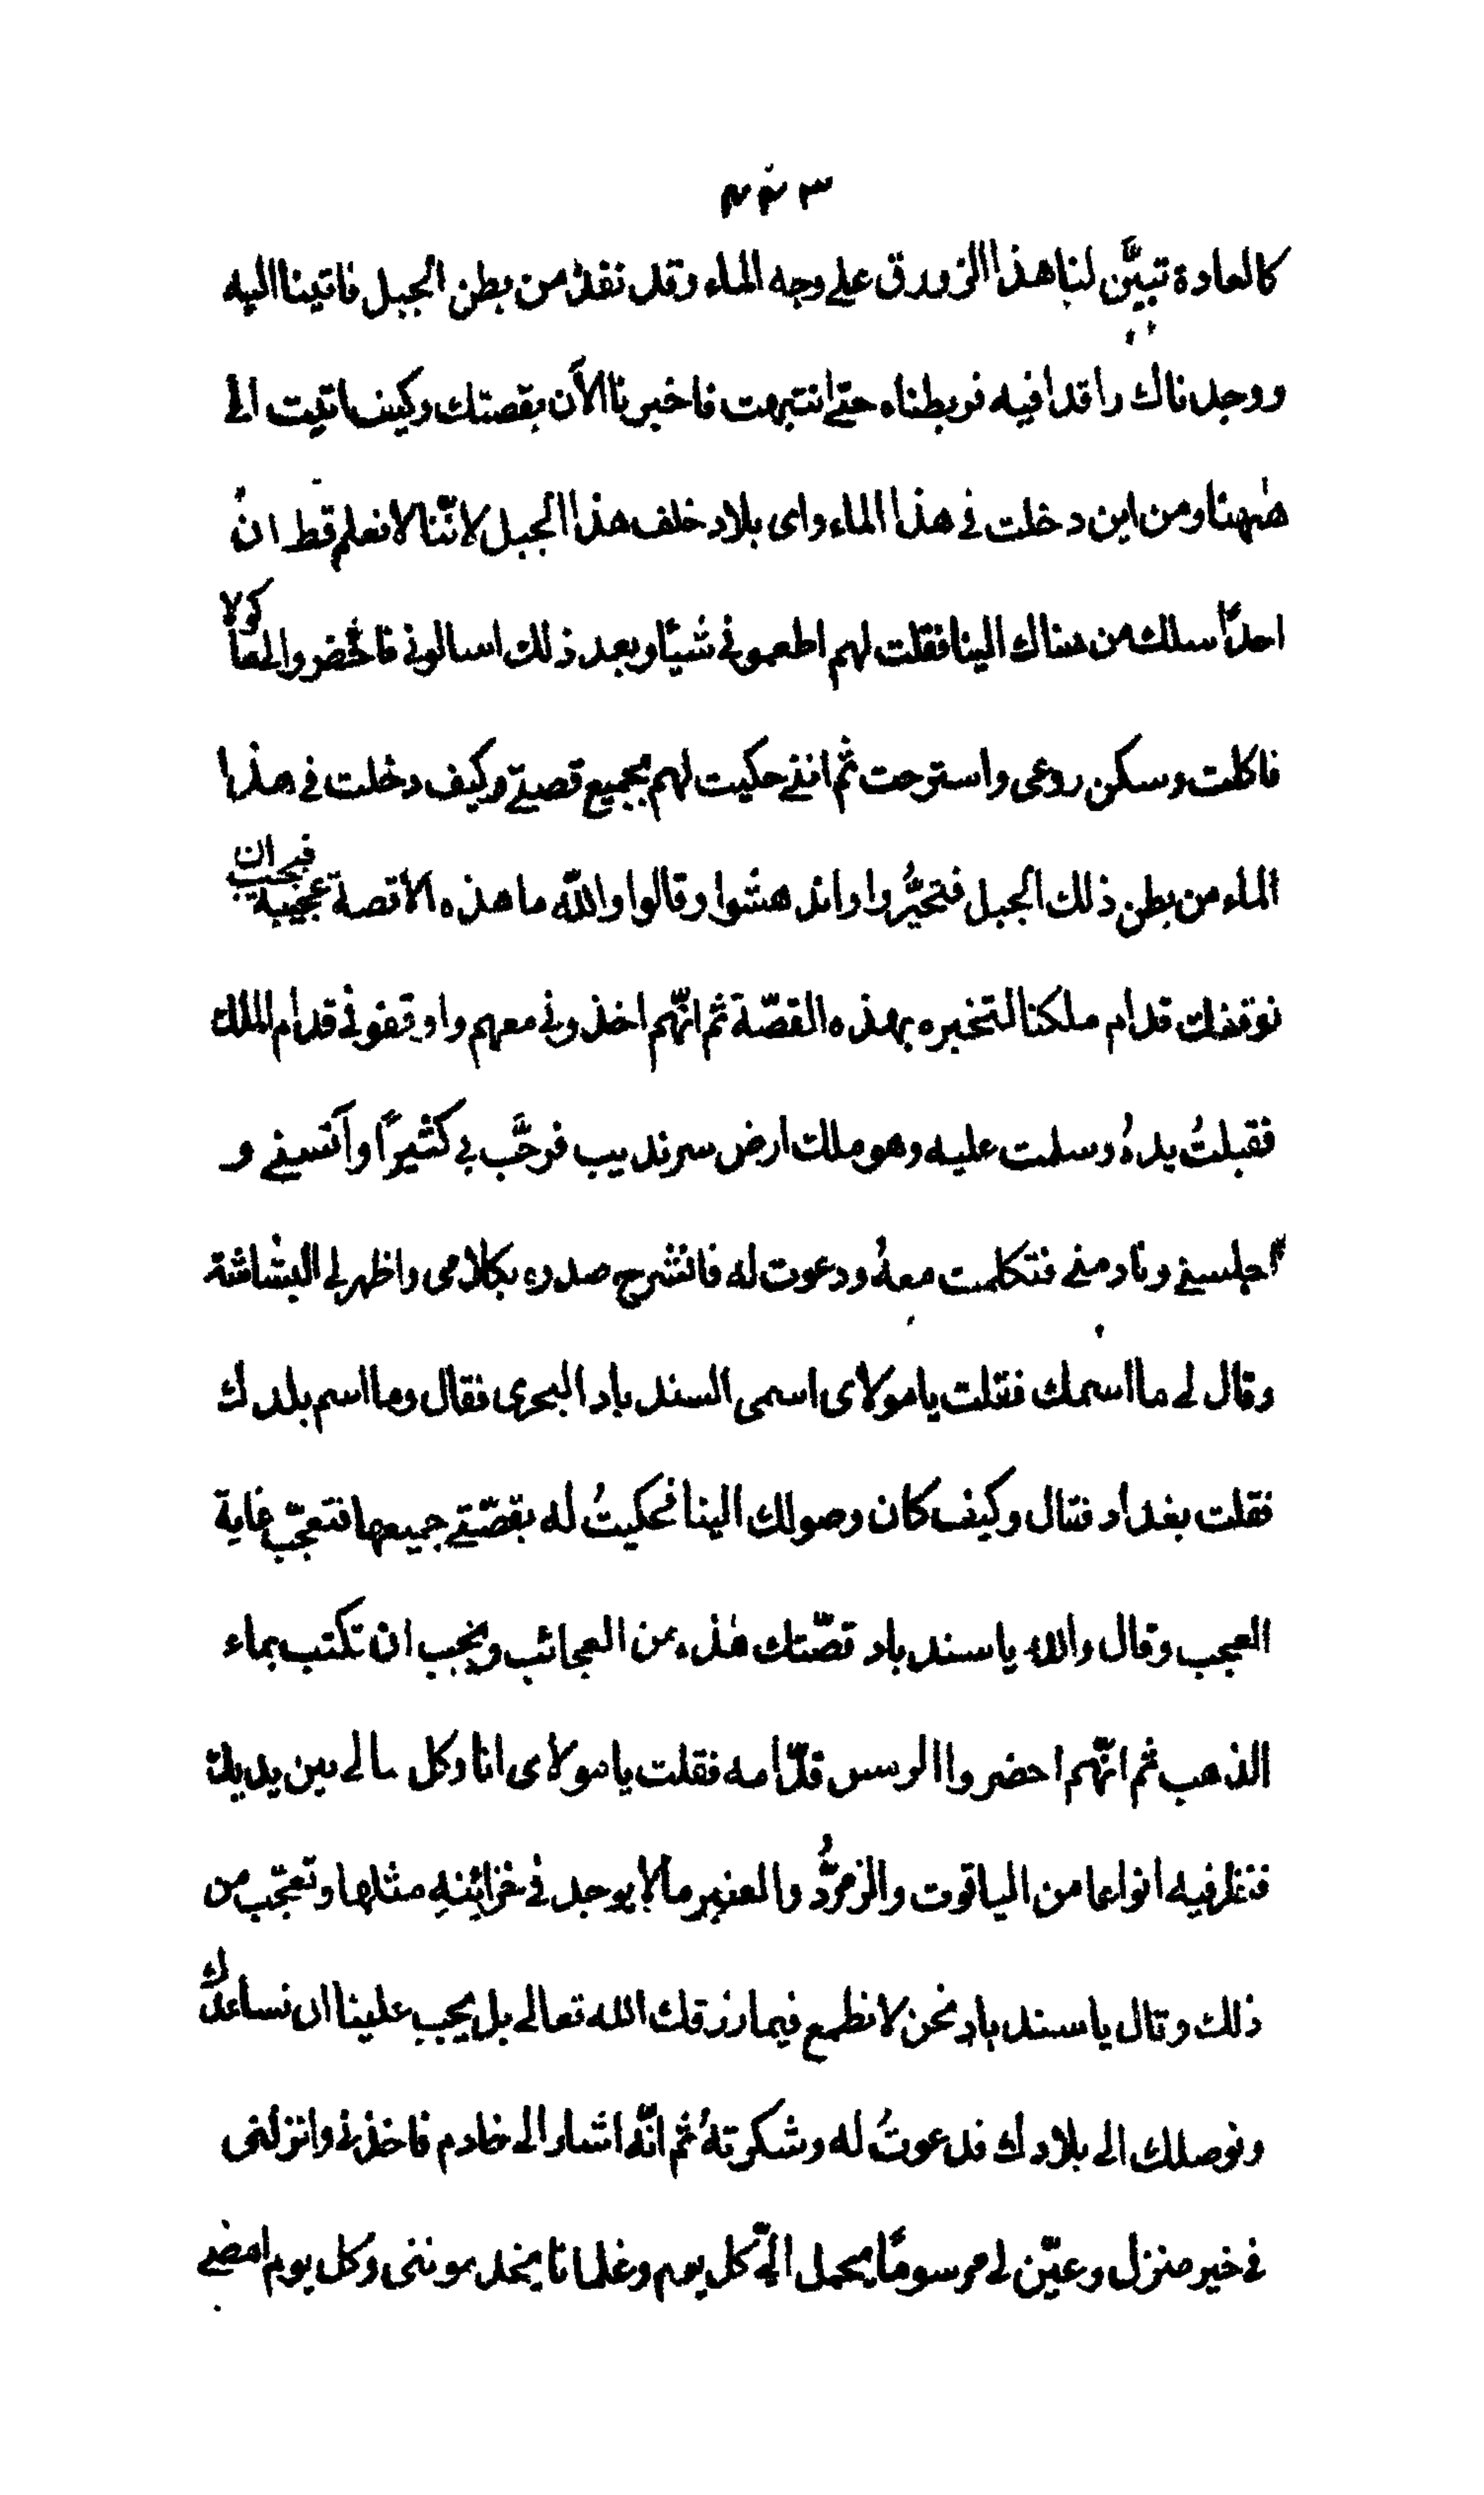 كالعادة تبيَّن لنا هذا الزورق على وجه الماء وقد نفذ من بطن الجبل فاتينا اليه
ووجدناك راقدا فيه فربطناه حتى انتبهت فاخبرنا الآن بقصتك وكيف اتيت الى
هٰهنا ومن اين دخلت فى هذا الماء واى بلاد خلف هذا الجبل لانّنا لا نعلم قط ان
احدًا سلك من هناك الينا فقلت لهم اطعمونى شيًا وبعد ذلك اسالونى فاحضروا لى ماكولا
فاكلت وسكن روعى واسترحت ثم اننى حكيت لهم بجميع قصتى وكيف دخلت فى هذا
الماء من بطن ذلك الجبل فتحيّروا واندهشوا وقالوا واللّٰه ما هذه الا قصة عجيبة فيجب ان
نوقفك قدام ملكنا لتخبره بهذه القصّة ثم انّهم اخذونى معهم واوقفونى قدام الملك
فقبلتُ يدهُ وسلمت عليه وهو ملك ارض سرنديب فرحَّب بى كثيرًا وآنسنى و
اجلسنى ونادمنى فتكلمت معهُ ودعوت له فانشرح صدره بكلامى واظهر لى البشاشة
وقال لى ما اسمك فقلت يا مولاى اسمى السندباد البحرى فقال وما اسم بلدك
فقلت بغداد فقال وكيف كان وصولك الينا فحكيتُ له بقصّتى جميعها فتعجّب غاية
العجب وقال والله يا سندباد قصّتك هٰذه من العجائب ويجب ان تكتب بماء
الذهب ثم انّهم احضروا الرمس قدّامه فقلت يا مولاى انا وكل مالى بين يديك
فنظر فيه انواعا من الياقوت والزمرُّد والعنبر ما لا يوجد فى خزائنهِ مثلها وتعجّب من
ذلك وقال يا سندباد نحن لا نطمع فيما رزقك الله تعالى بل يجب علينا ان نساعدك
ونوصلك الى بلادك فدعوتُ له وشكرتهُ ثم انّه اشار الى خادم فاخذنى وانزلنى
فى خير منزل وعيّن لى مرسومًا يحمل الىّ كل يوم وغلمانا يخدموننى وكل يوم امضى